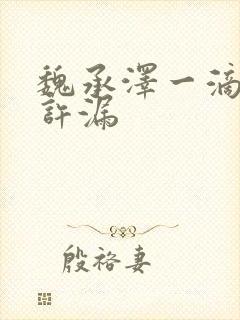 魏承澤一滴
許漏
殷裕妻